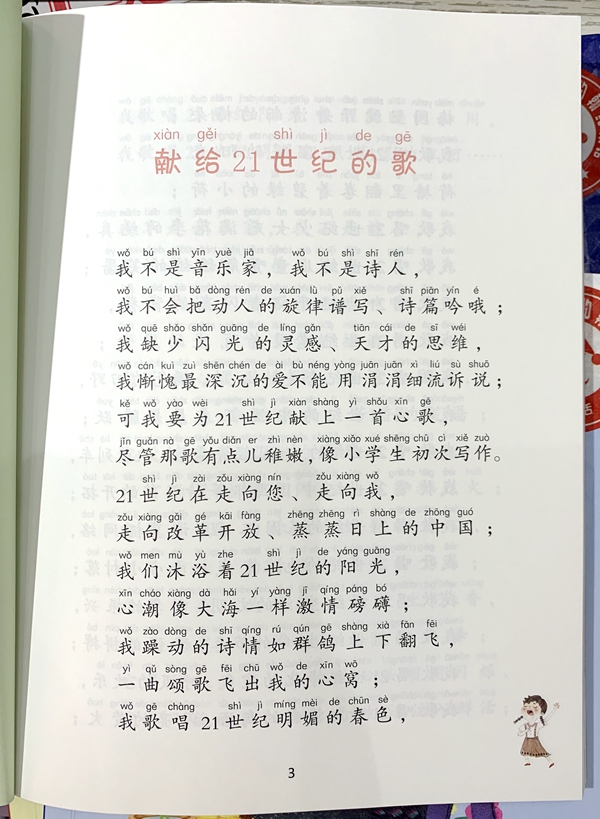 xiàn gěi shì jì de gē
献给21世纪的歌
wǒ bú shì yīn yuè jiā wǒ bú shì shī rén
我不是音乐家，我不是诗人，
wǒ bú huì bǎ dòng rén de xuán lǜ pǔ xiě shī piān yín é
我不会把动人的旋律谱写、诗篇吟哦；
wǒ quē shǎo shǎn guāng de líng gǎn tiān cái de sī wéi
我缺少闪光的灵感、天才的思维，
wǒ cán kuì zuì shēn chén de ài bù néng yòng juān juān xì liú sù shuō
我惭愧最深沉的爱不能用涓涓细流诉说；
kě wǒ yào wèi shì jì xiàn shàng yì shǒu xīn gē
可我要为21世纪献上一首心歌，
jǐn guǎn nà gē yǒu diǎn er zhì nèn xiàng xiǎo xué shēng chū cì xiě zuò
尽管那歌有点儿稚嫩，像小学生初次写作。
shì jì zài zǒu xiàng nín zǒu xiàng wǒ
21世纪在走向您、走向我，
zǒu xiàng gǎi gé kāi fàng zhēng zhēng rì shàng de zhōng guó
走向改革开放、蒸蒸日上的中国；
wǒ men mù yù zhe shì jì de yáng guāng
我们沐浴着21世纪的阳光，
xīn cháo xiàng dà hǎi yí yàng jī qíng páng bó
心潮像大海一样激情磅礴；
wǒ zào dòng de shī qíng rú qún gē shàng xià fān fēi
我躁动的诗情如群鸽上下翻飞，
yì qǔ sòng gē fēi chū wǒ de xīn wō
一曲颂歌飞出我的心窝；
wǒ gē chàng shì jì míng mèi de chūn sè
我歌唱21世纪明媚的春色，
3